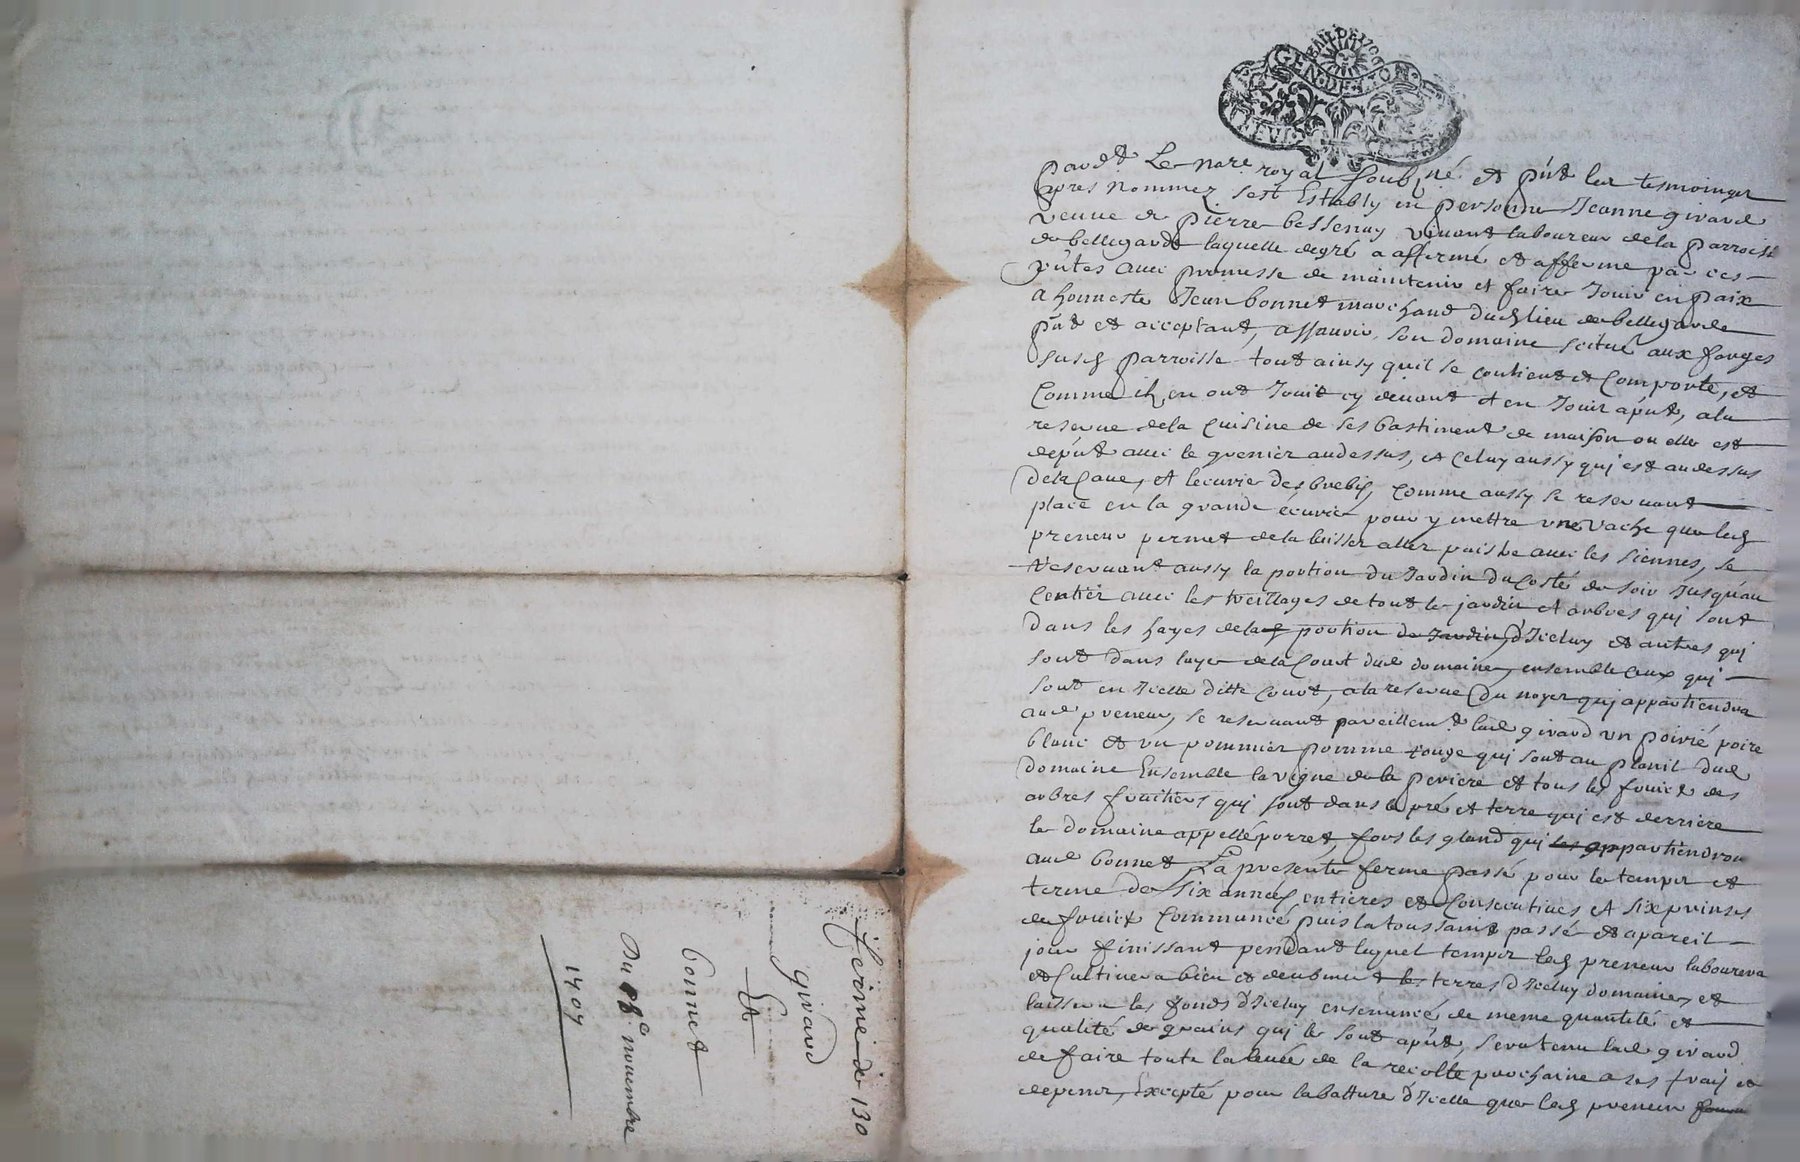 GEN DE LYON
Pard.t Le no.re royal soubs.né et p.nt les tesmoingz
apres nommez s'est Estably en personne Jeanne girard
veuve de pierre bessenay vivant laboureur de la parroisse
de bellegarde laquelle de gré a affermé et afferme par ces
p.ntes avec promesse de maintenir et faire Jouir en paix
a honneste Jean bonnet marchand dud lieu de bellegarde
p.nt et acceptant, assavoir, son domaine scitué aux forges
susd parroisse tout ainsy qu'il se contient et Comporte, et
Comme ilz en ont Jouit cy devant et en Jouit ap.nt, a la
reserve de la Cuisine de ses bastiment de maison ou elle est
de p.nt avec le grenier au dessus, et Celuy aussy qui est au dessus
de la Cave, et lecurie des brebis, Comme aussy se reservant
place en la grande ecurie pour y mettre une Vache que led
preneur permet de la laisser aller paistre avec les siennes, se
reservant aussy la portion du Jardin du Costé de soir Jusqu'au
Centier avec les treillages de tout le jardin et arbres qui sont
dans les hayes de lad portion de Jardin, d'Iceluy et autres qui
sont dans layer de la Court dud domaine, ensemble Ceux qui
sont en Icelle ditte Court, a la reserve du noyer qui appartiendra
aud preneur, se reservant pareillem.t lad girard un poirié poire
blanc et un pommier pomme rouge qui sont au planil dud
domaine Ensemble la vigne de la periere et tous les fruict des
arbres fruitiers qui sont dans le pré et terre qui est derriere
le domaine appellé porret, fors les gland qui les appartiendron
aud bonnet La presente ferme passé pour le temps et
terme de six années entieres et Consecutives et six prinses
de fruict Commancé puis la toussaint passé et a pareil
jour finissant pendant lequel temps led preneur labourera
et Cultivera bien et deubment les terres d'Iceluy domaine, et
laissera les fonds d'Iceluy ensemencé de meme quantité et
qualité de grains qui le sont ap.nt, sera tenu lad girard
de faire toute la levée de la recolte prochaine a ses frais et
depens, Excepté pour la batture d'Icelle que led preneur
ferme de 130
Girard
Et
bonnet
Du 18e novembre
1707